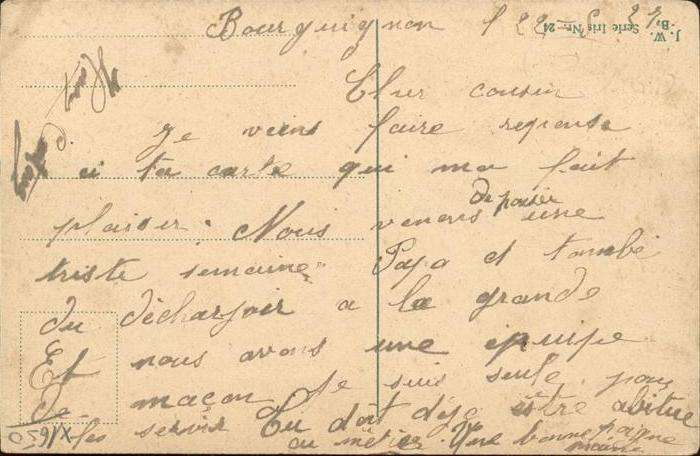 Bourguignon l 22
Cher cousin
Je viens faire reponse
a ta carte qui ma fait
plaisir. Nous venons de passer une
triste semaine Papa et tombé
du décharjoir a la grande
Et nous avons une equipe
de maçon je suis seule pour
les servir tu doit deja être abitue
au métier. Une bonne poigne
J. W.
B. Serie Iris Nr. 24
X1650